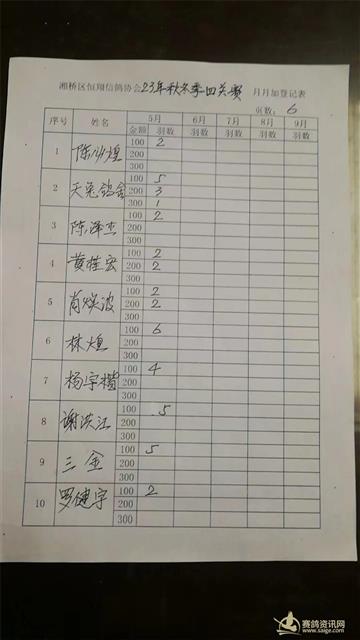 湘桥区恒翔信鸽协会23年秋冬季四关赛 月月加登记表
页数: 6
序号 姓名 5月 6月 7月 8月 9月
金额 羽数 羽数 羽数 羽数 羽数
1 100 2
200
300
2 天兔鸽舍 100 5
200 3
300 1
3 陈泽杰 100 2
200
300
4 黄桂宏 100 2
200 2
300
5 肖煐波 100 2
200 2
300
6 林烜 100 6
200
300
7 杨宇楷 100 4
200
300
8 谢洪江 100 5
200
300
9 三金 100 5
200
300
10 罗健宇 100 2
200
300
赛鸽资讯网
www.saige.com